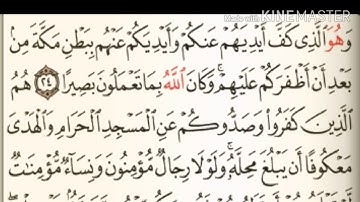 Made with KINEMASTER
وَهُوَ ٱلَّذِى كَفَّ أَيْدِيَهُمْ عَنكُمْ وَأَيْدِيَكُمْ عَنْهُم بِبَطْنِ مَكَّةَ مِنۢ
بَعْدِ أَنْ أَظْفَرَكُمْ عَلَيْهِمْ ۚ وَكَانَ ٱللَّهُ بِمَا تَعْمَلُونَ بَصِيرًا ٢٤ هُمُ
ٱلَّذِينَ كَفَرُوا۟ وَصَدُّوكُمْ عَنِ ٱلْمَسْجِدِ ٱلْحَرَامِ وَٱلْهَدْىَ
مَعْكُوفًا أَن يَبْلُغَ مَحِلَّهُۥ ۚ وَلَوْلَا رِجَالٌ مُّؤْمِنُونَ وَنِسَآءٌ مُّؤْمِنَٰتٌ